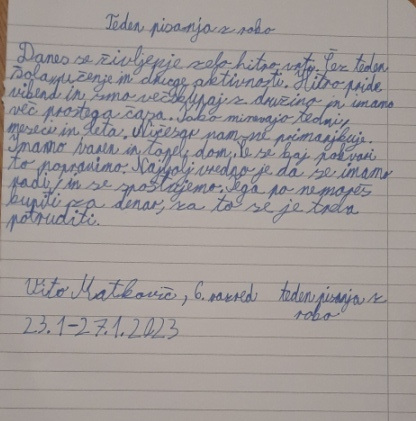 Teden pisanja z roko
Danes se življenje zelo hitro vrti. Čez teden
šola, učenje in druge aktivnosti. Hitro pride
vikend in smo več skupaj z družino in imamo
več prostega časa. Tako minevajo tedni,
meseci in leta. Ničesar nam ne primanjkuje.
Imamo varen in topel dom. Če se kaj pokvari
to popravimo. Najbolj vredno je da se imamo
radi, in se spoštujemo. Tega pa ne moreš
kupiti za denar, za to se je treba
potruditi.
Vito Matkovič, 6. razred teden pisanja z
roko
23.1-27.1.2023